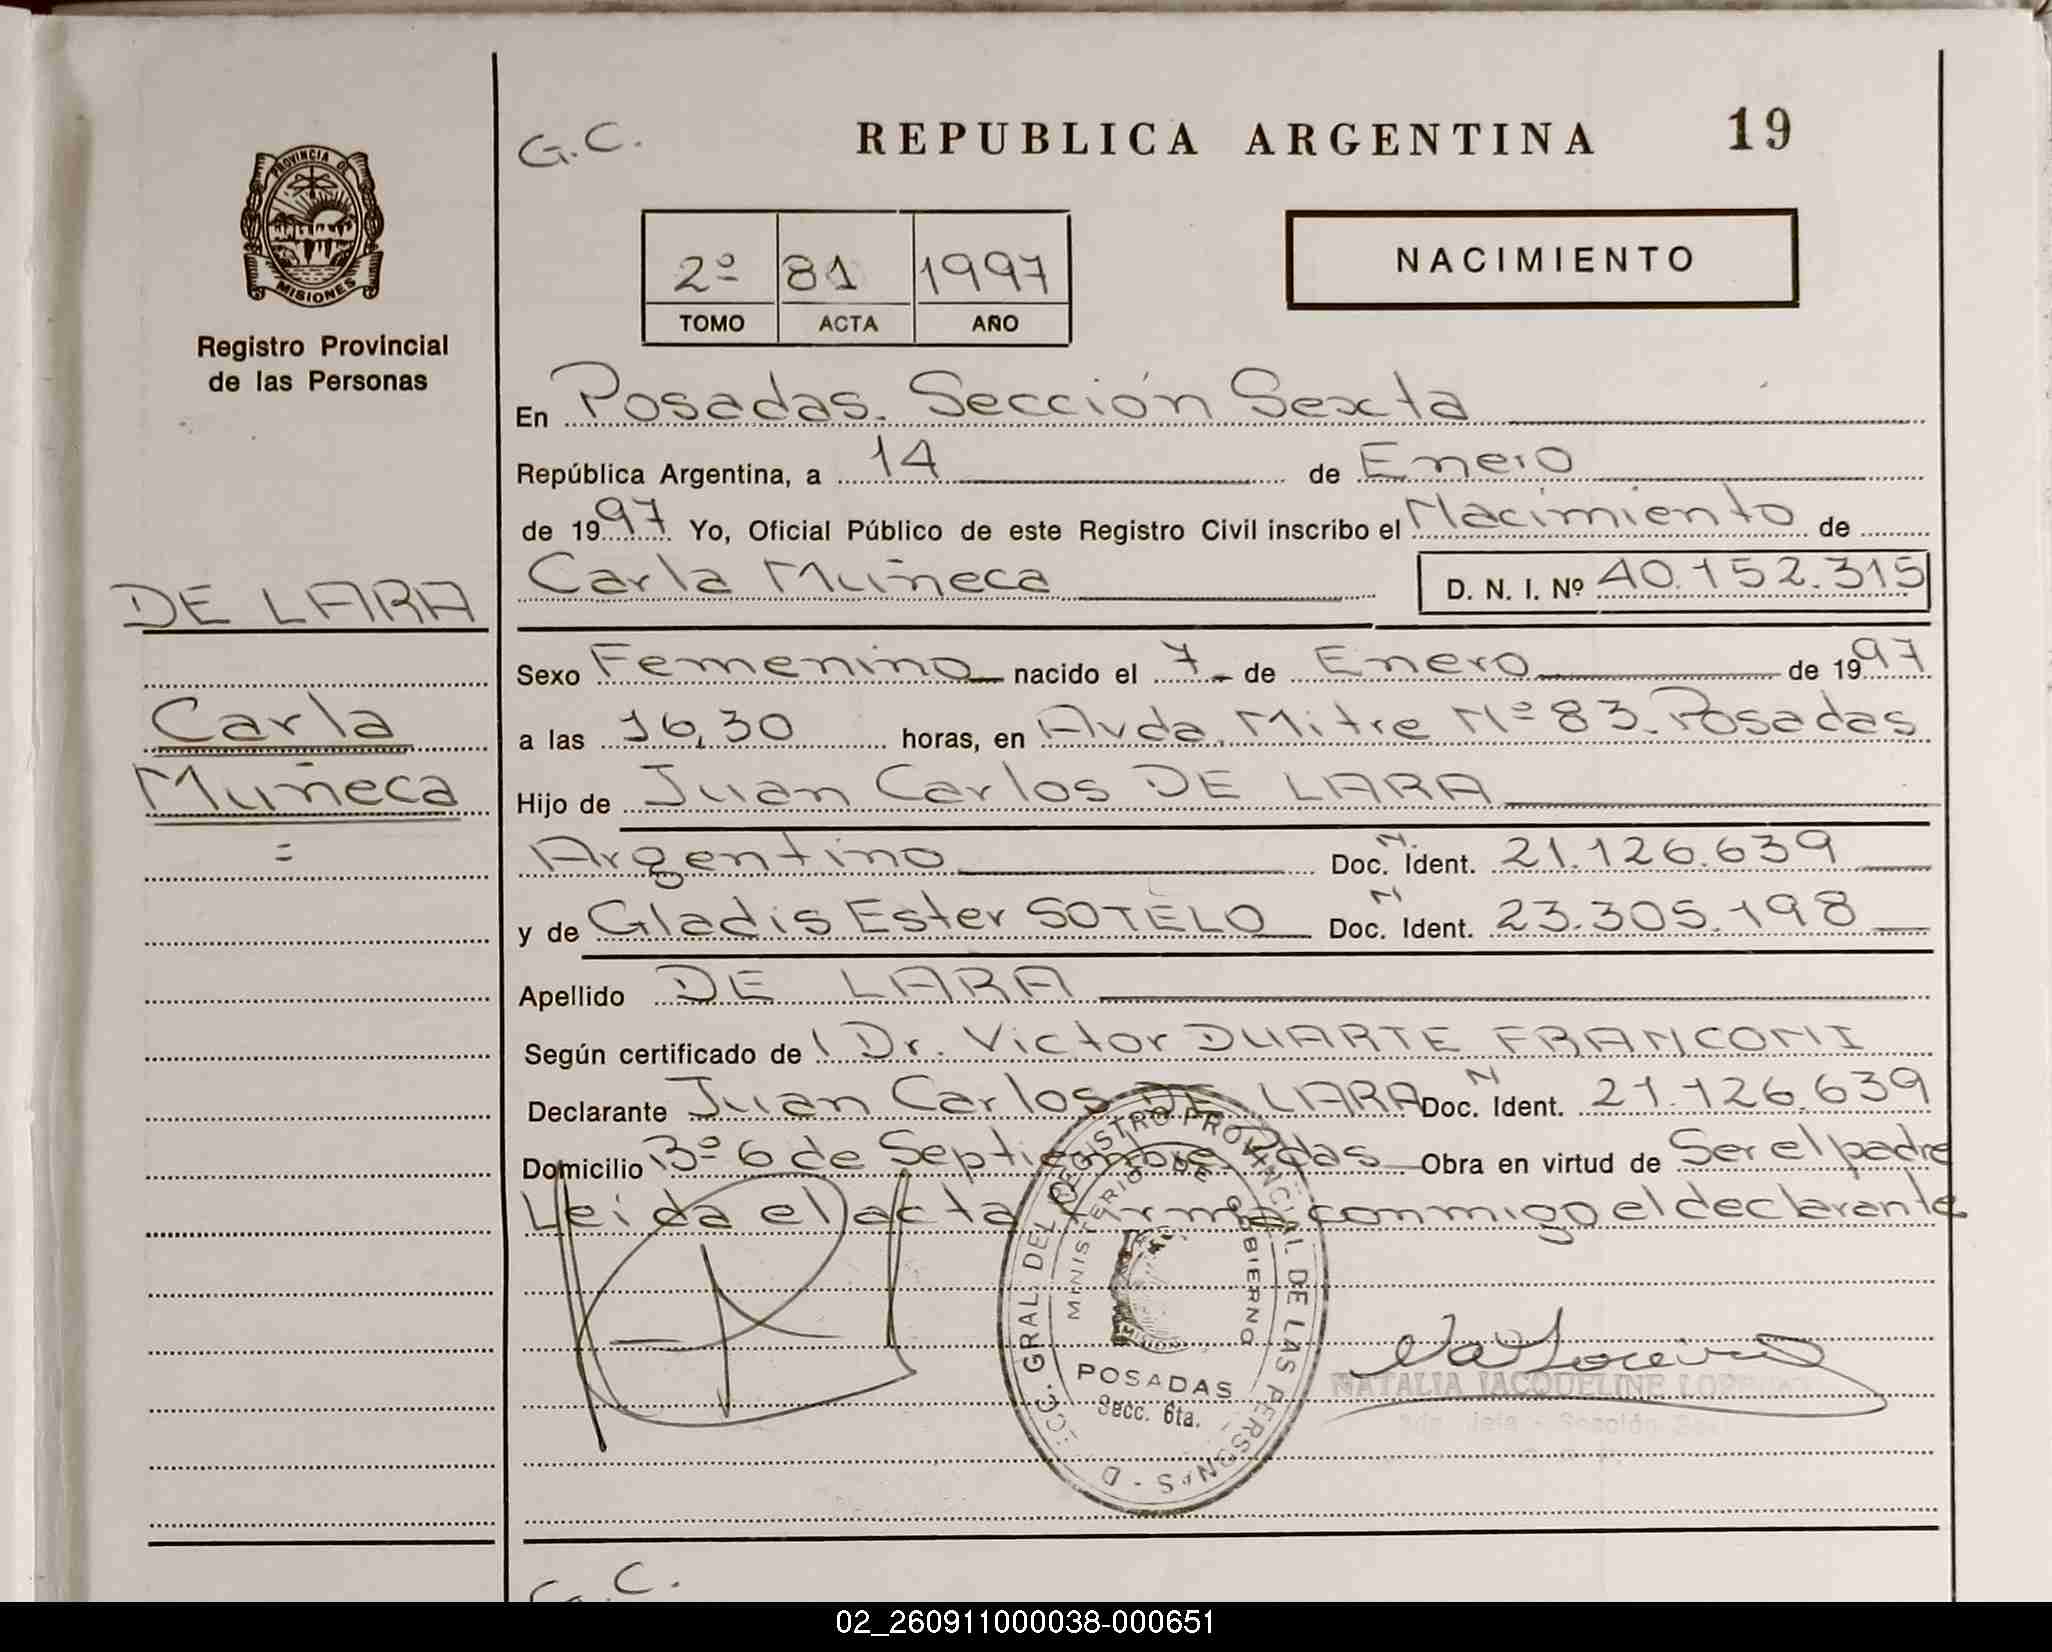 G.C.
REPUBLICA ARGENTINA 19
PROVINCIA DE
MISIONES
Registro Provincial
de las Personas
2º 81 1997
TOMO ACTA AÑO
NACIMIENTO
En Posadas. Sección Sexta
República Argentina, a 14 de Enero
de 1997 Yo, Oficial Público de este Registro Civil inscribo el Nacimiento de
Carla Muñeca D. N. I. Nº 40.152.315
DE LARA
Carla
Muñeca
=
Sexo Femenino nacido el 7 de Enero de 1997
a las 16,30 horas, en Avda. Mitre Nº 83. Posadas
Hijo de Juan Carlos DE LARA
Argentino Doc. N. Ident. 21.126.639
y de Gladis Ester SOTELO Doc. N Ident. 23.305.198
Apellido DE LARA
Según certificado de Dr. Victor DUARTE FRANCONI
Declarante Juan Carlos DE LARA Doc. N Ident. 21.126.639
Domicilio Bº 6 de Septiembre Pdas Obra en virtud de Ser el padre
Leida el acta firma conmigo el declarante
GRAL. DEL REGISTRO PROVINCIAL DE LAS PERSONAS
MINISTERIO DE GOBIERNO
POSADAS
Secc. 6ta.
NATALIA JACQUELINE
G.C.
02_260911000038-000651